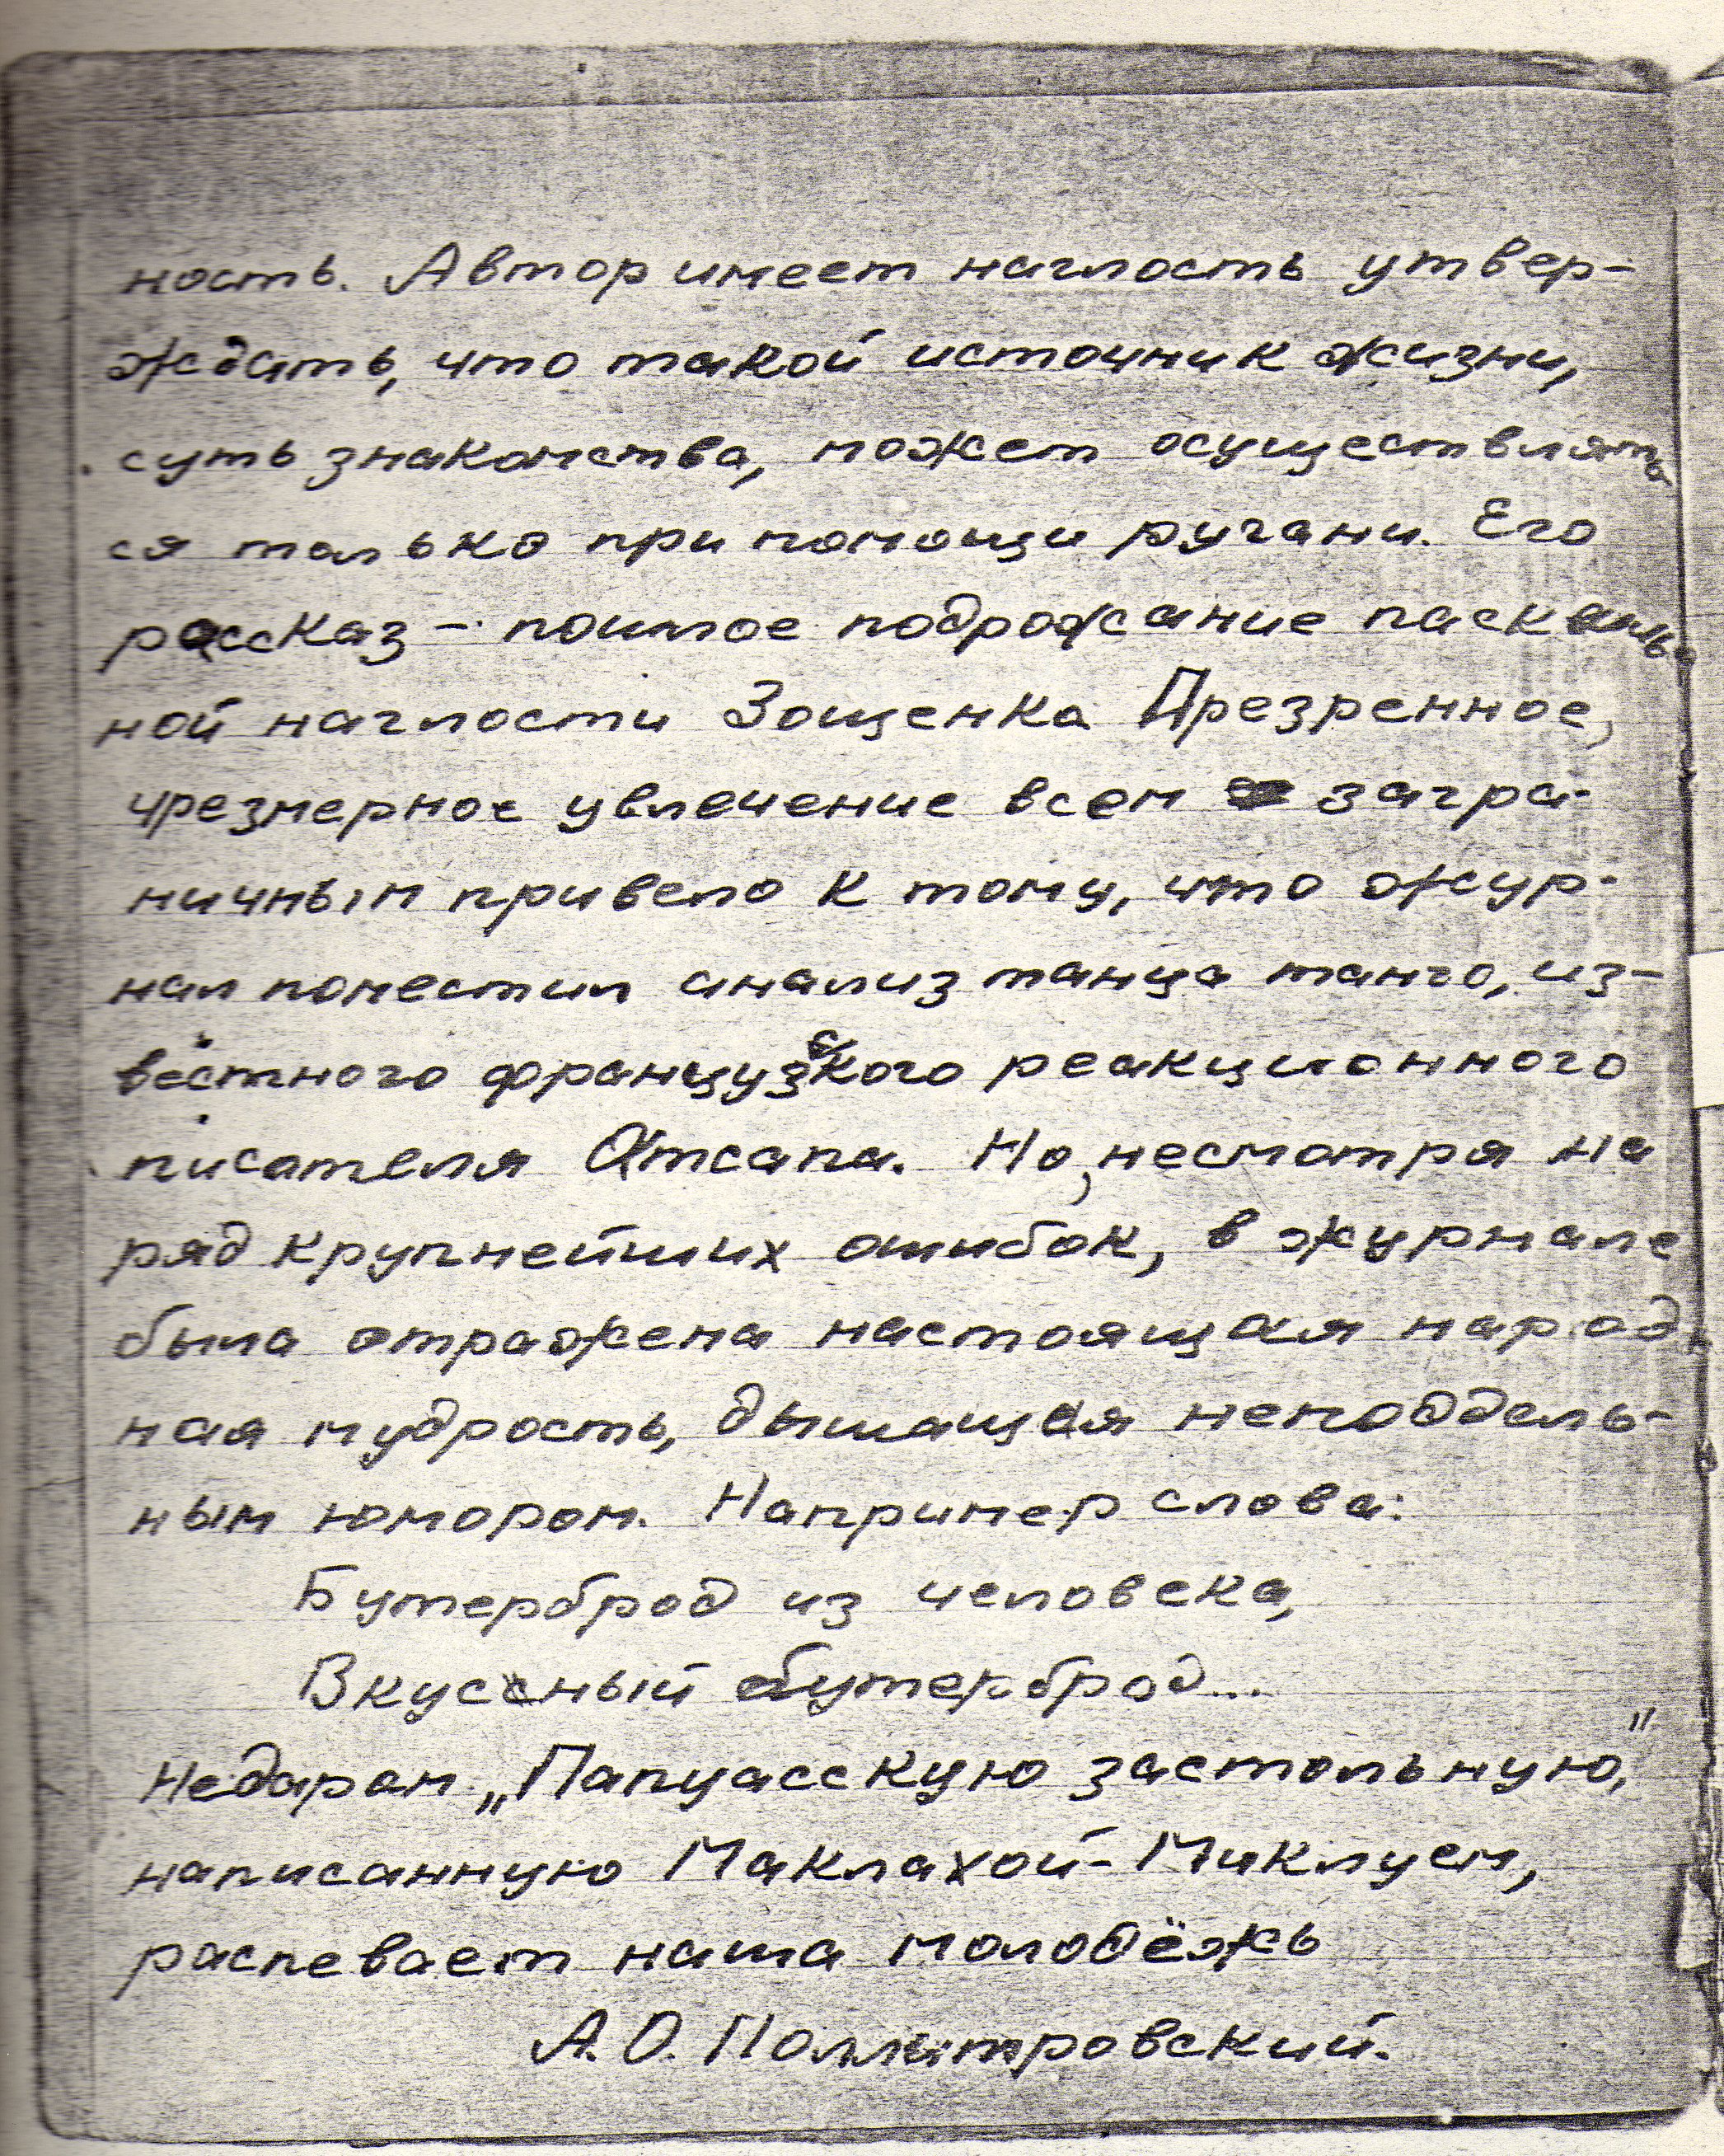 ность. Автор имеет наглость утвер-
ждать, что такой источник жизни,
суть знакомства, может осуществлять
ся только при помощи ругани. Его
рассказ — пошлое подрожание пасквиль-
ной наглости Зощенка Презренное,
чрезмерное увлечение всем загра-
ничным привело к тому, что жур-
нал поместил анализ танца танго, из-
вестного французского реакционного
писателя Атсапа. Но, несмотря на
ряд крупнейших ошибок, в журнале
была отражена настоящая народ-
ная мудрость, дышащая неподдель-
ным юмором. Например слова:
Бутерброд из человека,
Вкусный бутерброд...
Недаром „Папуасскую застольную",
написанную Маклахой-Миклуем,
распевает наша молодёжь
А. О. Поллитровский.